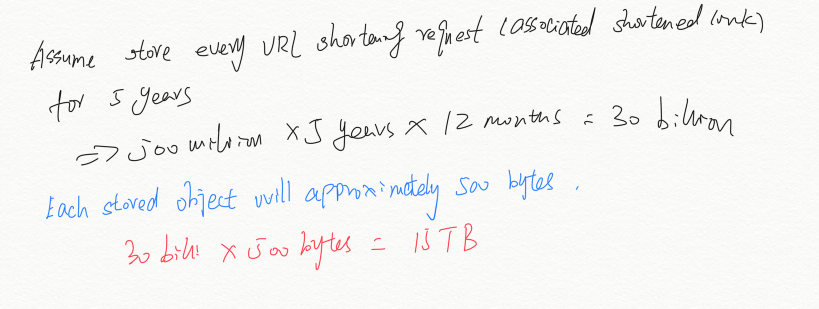 Assume store every URL shortening request (associated shortened link)
for 5 years
=> 500 million × 5 years × 12 months = 30 billion
Each stored object will approximately 500 bytes.
30 billi × 500 bytes = 15 TB